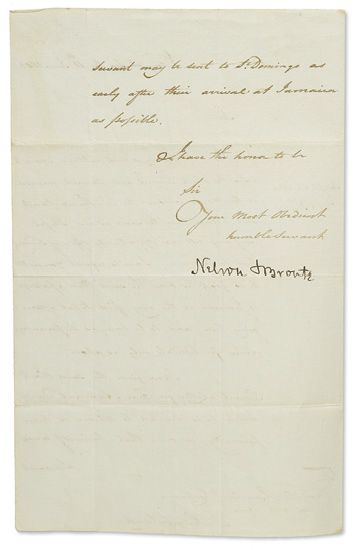 servant may be sent to St. Domingo as
early after their arrival at Jamaica
as possible.
I have the honor to be
Sir
Your Most Obedient
humble Servant
Nelson & Bronte